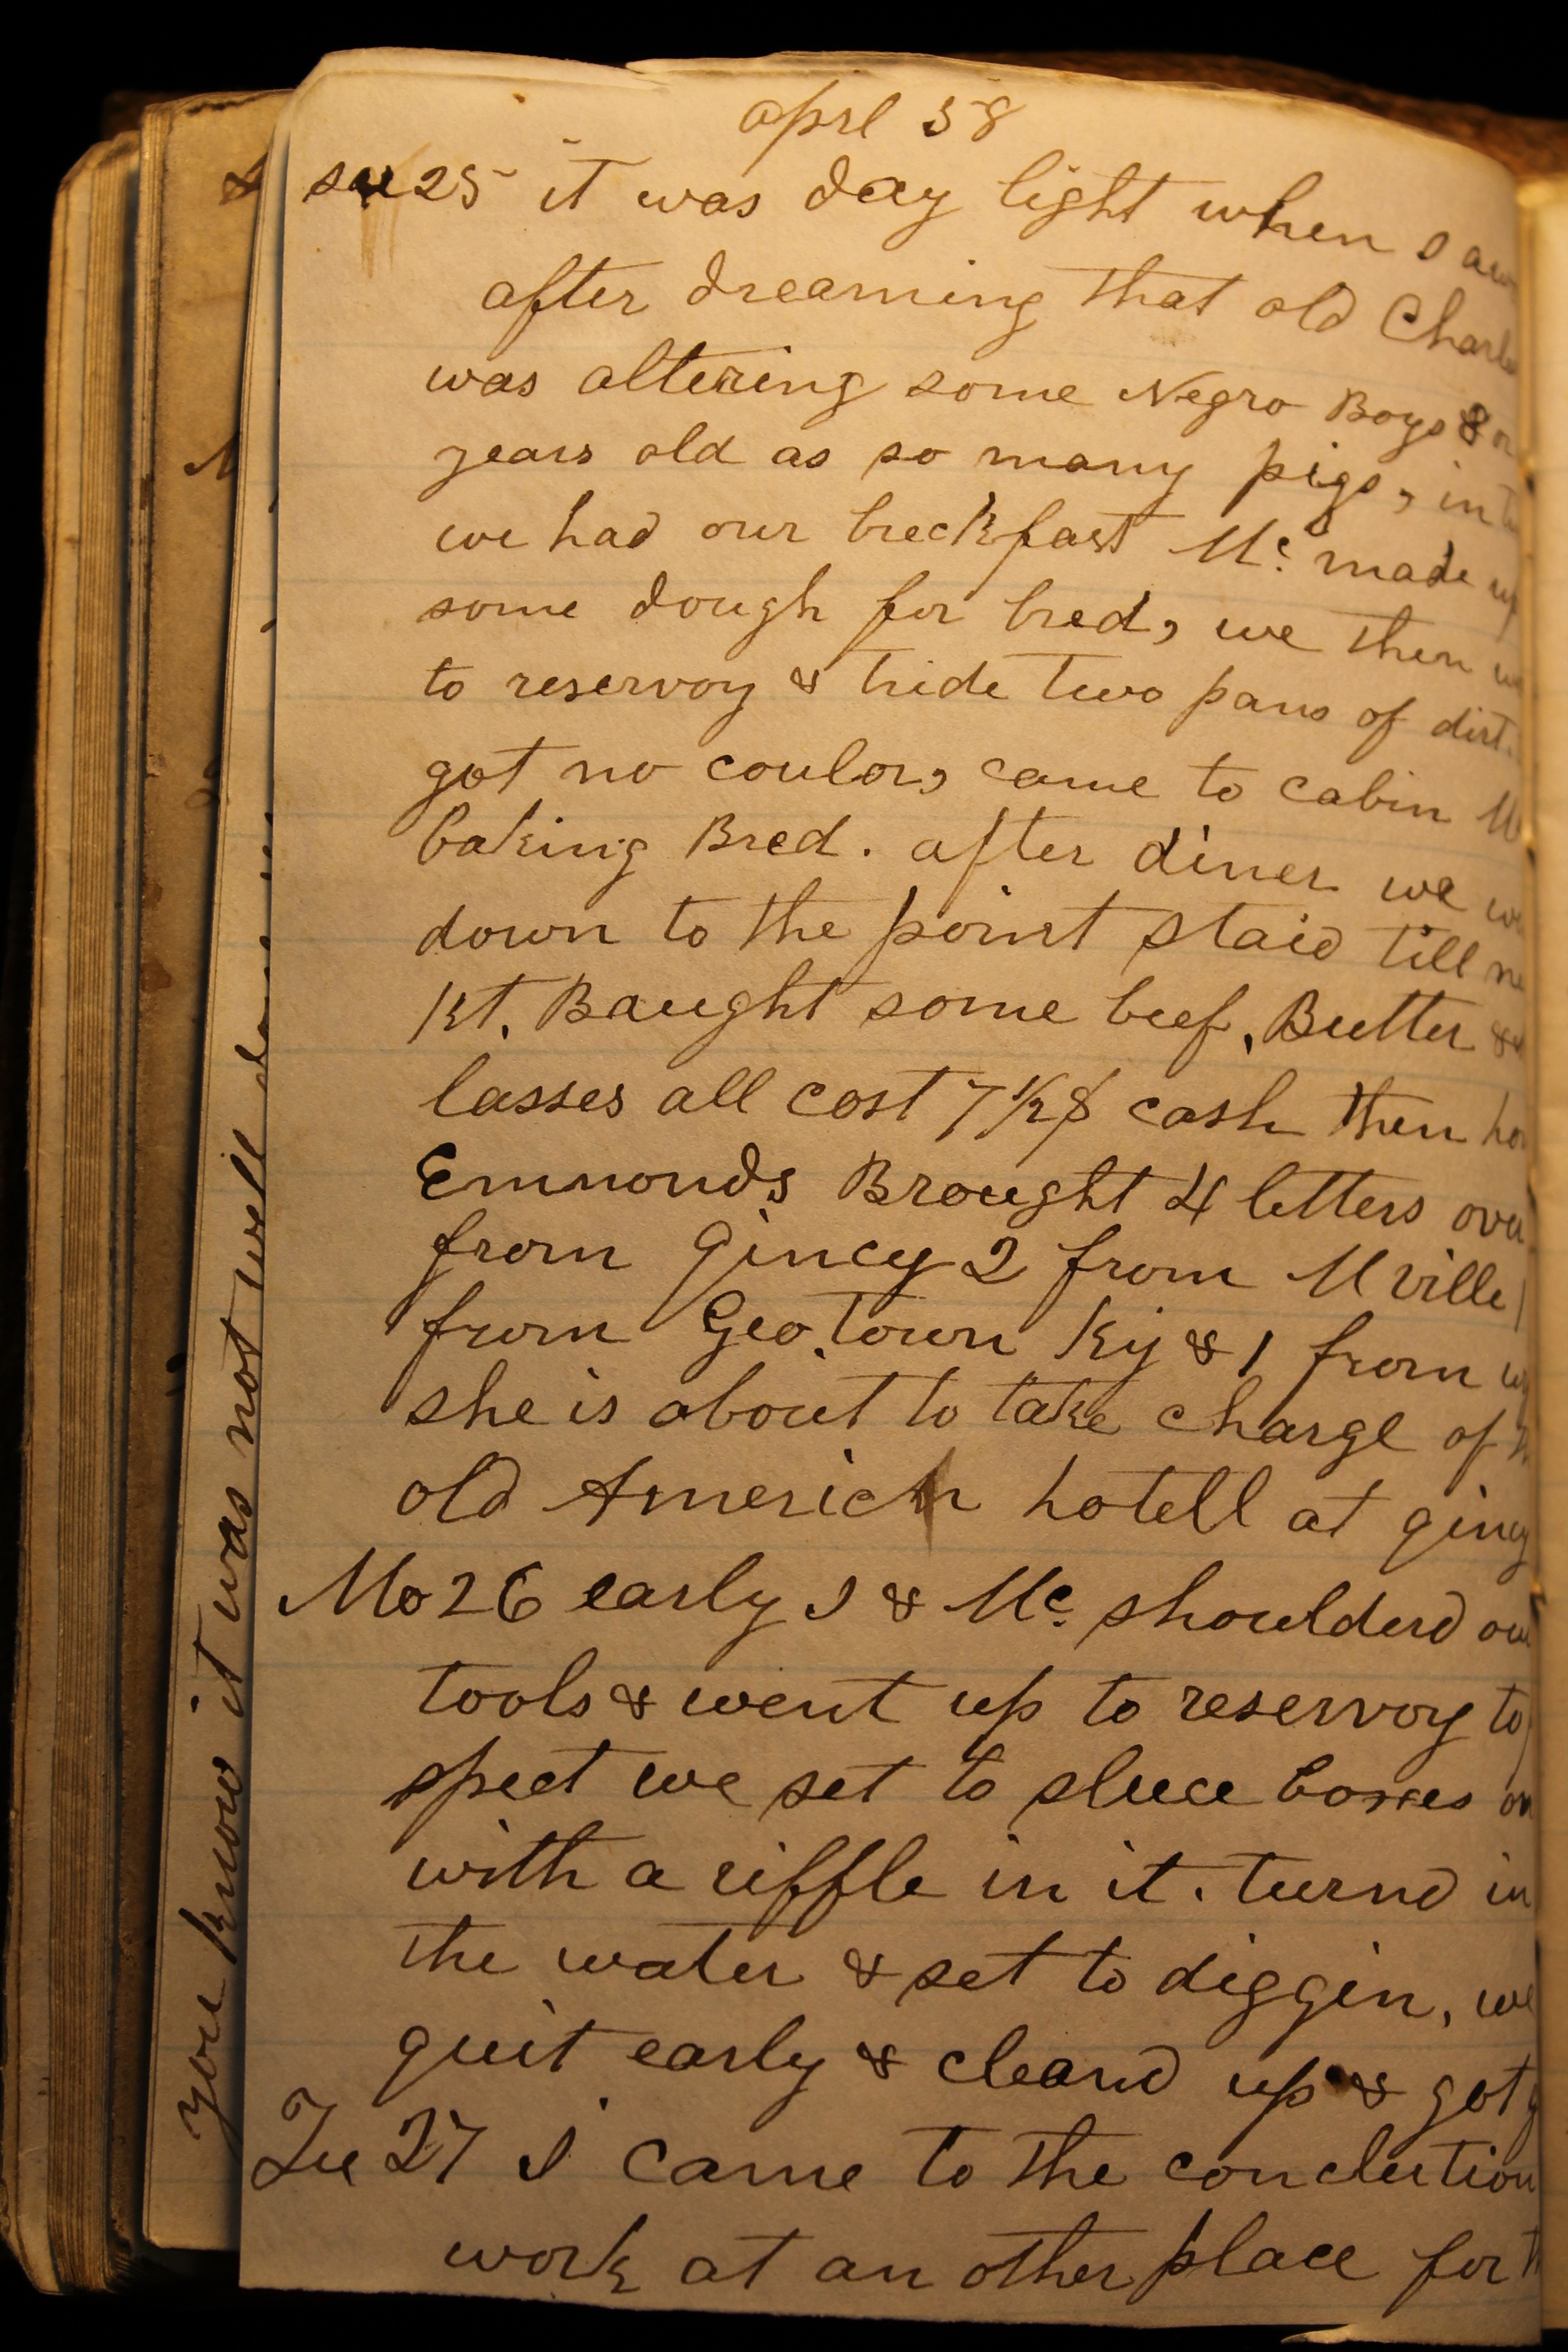 aprl 58
su 25 it was day light when I
after dreaming that old Charl
was altering some Negro Boys 8 or
years old as so many pigs, in
we had our breckfast Mc. made up
some dough for bred, we then
to reservoy & tride two pans of dirt.
got no coulor, came to cabin
baking Bred. after diner we
down to the point staid till
kt. Baught some beef, Butter &
lasses all cost 7 1/2 $ cash then
Emmonds Brought 4 letters over
from Qincy 2 from Mville 1
from Geo.town Ky & 1 from
she is about to take charge of
old Americn hotell at qincy
Mo 26 early I & Mc. shoulderd our
tools & went up to reservoy to
spect we set to sluce boxes on
with a riffle in it. turnd in
the water & set to diggin, we
quit early & cleand up & got
Tu 27 I came to the conclution
work at an other place for
you know it was not well